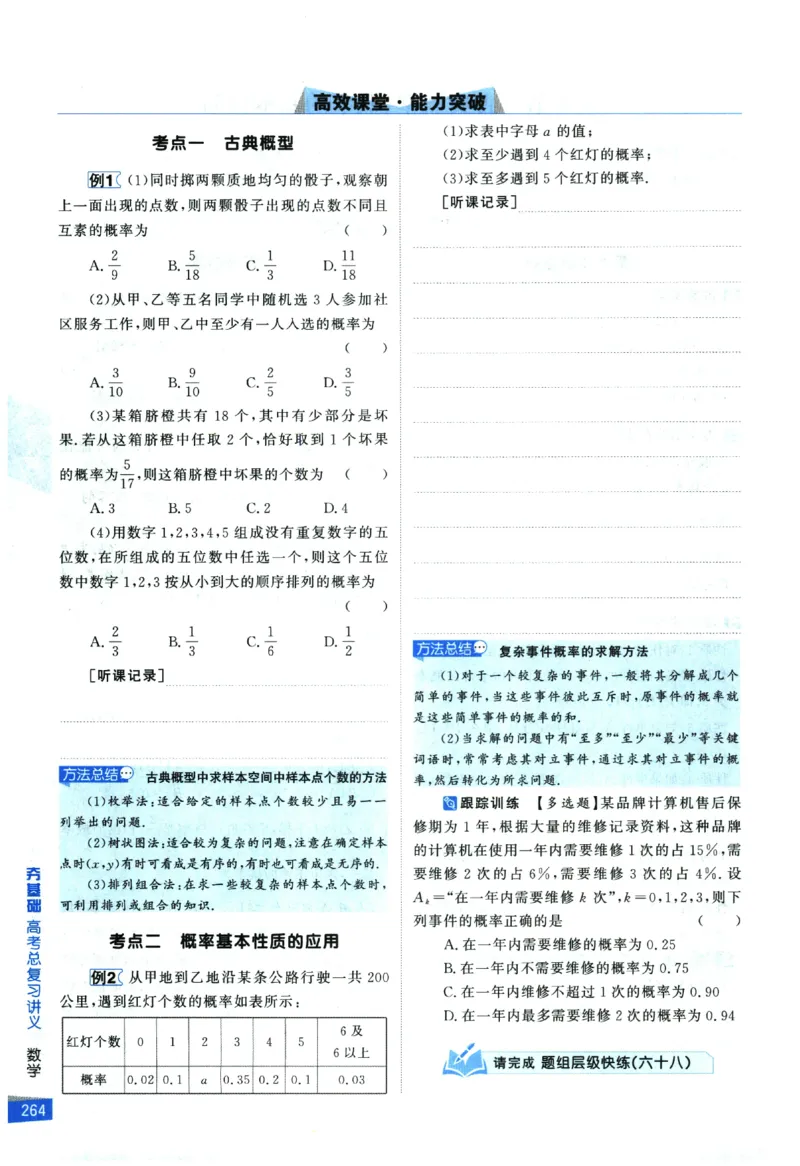 高效课堂·能力突破
考点一 古典概型
例1 (1)同时掷两颗质地均匀的骰子,观察朝
上一面出现的点数,则两颗骰子出现的点数不同且
互素的概率为 ( )
A. 2/9 B. 5/18 C. 1/3 D. 11/18
(2)从甲、乙等五名同学中随机选 3 人参加社
区服务工作,则甲、乙中至少有一人入选的概率为
( )
A. 3/10 B. 9/10 C. 2/5 D. 3/5
(3)某箱脐橙共有 18 个,其中有少部分是坏
果.若从这箱脐橙中任取 2 个,恰好取到 1 个坏果
的概率为5/17,则这箱脐橙中坏果的个数为 ( )
A. 3 B. 5 C. 2 D. 4
(4)用数字 1,2,3,4,5 组成没有重复数字的五
位数,在所组成的五位数中任选一个,则这个五位
数中数字 1,2,3 按从小到大的顺序排列的概率为
( )
A. 2/3 B. 1/3 C. 1/6 D. 1/2
[听课记录]
方法总结 古典概型中求样本空间中样本点个数的方法
(1)枚举法:适合给定的样本点个数较少且易一一
列举出的问题.
(2)树状图法:适合较为复杂的问题,注意在确定样本
点时(x,y)有时可看成是有序的,有时也可看成是无序的.
(3)排列组合法:在求一些较复杂的样本点个数时,
可利用排列或组合的知识.
考点二 概率基本性质的应用
例2 从甲地到乙地沿某条公路行驶一共 200
公里,遇到红灯个数的概率如表所示:
红灯个数 0 1 2 3 4 5 6 及
6 以上
概率 0.02 0.1 a 0.35 0.2 0.1 0.03
(1)求表中字母 a 的值;
(2)求至少遇到 4 个红灯的概率;
(3)求至多遇到 5 个红灯的概率.
[听课记录]
方法总结 复杂事件概率的求解方法
(1)对于一个较复杂的事件,一般将其分解成几个
简单的事件,当这些事件彼此互斥时,原事件的概率就
是这些简单事件的概率的和.
(2)当求解的问题中有“至多”“至少”“最少”等关键
词语时,常常考虑其对立事件,通过求其对立事件的概
率,然后转化为所求问题.
跟踪训练 【多选题】某品牌计算机售后保
修期为 1 年,根据大量的维修记录资料,这种品牌
的计算机在使用一年内需要维修 1 次的占 15%,需
要维修 2 次的占 6%,需要维修 3 次的占 4%. 设
Aₖ=“在一年内需要维修 k 次”,k=0,1,2,3,则下
列事件的概率正确的是 ( )
A. 在一年内需要维修的概率为 0.25
B. 在一年内不需要维修的概率为 0.75
C. 在一年内维修不超过 1 次的概率为 0.90
D. 在一年内最多需要维修 2 次的概率为 0.94
请完成 题组层级快练(六十八)
夯基础 高考总复习讲义 数学
264